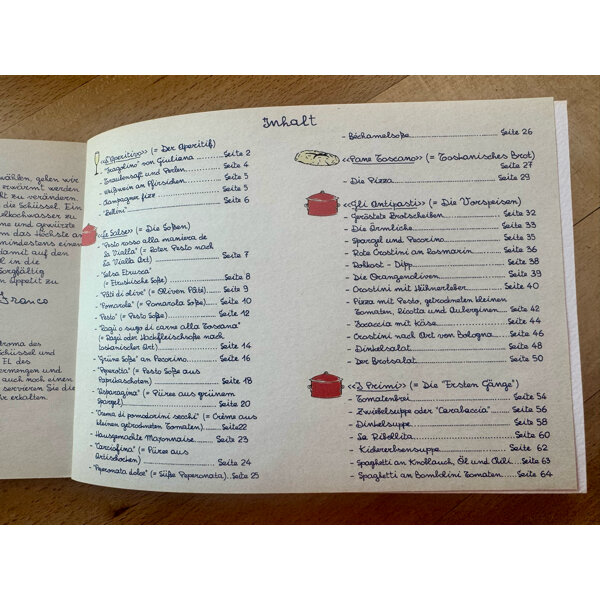 wählen, gehen wir
erwärmt werden
ht zu verändern.
die Schüssel. Ein
elkochwasser zu
me und gewürzte
um das Höchste an
mindestens einen
damit auf den
l in die
Sorgfältig
n Appetit zu
Franco
roma des
Schüssel und
EL des
vermengen und
auch noch einen
servieren Sie die
hr erhalten
Inhalt
«L'Aperitivo» (= Der Aperitif)
- "Fragolino" von Giuliana Seite 2
- Traubensaft und Perlen Seite 4
- Weißwein an Pfirsichen Seite 5
- Campagner fizz Seite 5
- "Bellini" Seite 6
«Le Salse» (= Die Soßen)
- "Pesto rosso alla maniera de
La Vialla" (= Roter Pesto nach
La Vialla Art) Seite 7
- "Salsa Etrusca"
(= Etruskische Soße) Seite 8
- "Pâté di olive" (= Oliven Pâté) Seite 9
- "Pomarola" (= Pomarola Soße) Seite 10
- "Pesto" (= Pesto Soße) Seite 12
- "Ragù o sugo di carne alla Toscana"
(= Ragù oder Hackfleischsoße nach
toskanischer Art) Seite 14
- Grüne Soße an Pecorino Seite 16
- "Peperotta" (= Pesto Soße aus
Paprikaschoten) Seite 18
- "Asparagina" (= Püree aus grünem
Spargel) Seite 20
- "Crema di pomodorini secchi" (= Crème aus
kleinen getrockneten Tomaten) Seite 22
- Hausgemachte Mayonnaise Seite 23
- "Carciofina" (= Püree aus
Artischocken) Seite 24
- "Peperonata dolce" (= Süße Peperonata) Seite 25
- Béchamelsoße Seite 26
«Pane Toscano» (= Toskanisches Brot)
Seite 27
- Die Pizza Seite 29
«Gli Antipasti» (= Die Vorspeisen)
- Geröstete Brotscheiben Seite 32
- Die Ärmliche Seite 33
- Spargel und Pecorino Seite 35
- Rote Crostini an Rosmarin Seite 36
- Rohkost - Dipp Seite 38
- Die Orangenoliven Seite 39
- Crostini mit Hühnerleber Seite 40
- Pizza mit Pesto, getrockneten kleinen
Tomaten, Ricotta und Auberginen Seite 42
- Focaccia mit Käse Seite 44
- Crostini nach Art von Bologna Seite 46
- Dinkelsalat Seite 48
- Der Brotsalat Seite 50
«I Primi» (= Die "Ersten Gänge")
- Tomatenbrei Seite 54
- Zwiebelsuppe oder "Carabaccia" Seite 56
- Dinkelsuppe Seite 58
- La Ribollita Seite 60
- Kichererbsensuppe Seite 62
- Spaghetti an Knoblauch, Öl und Chili Seite 63
- Spaghetti an Bombolini Tomaten Seite 64